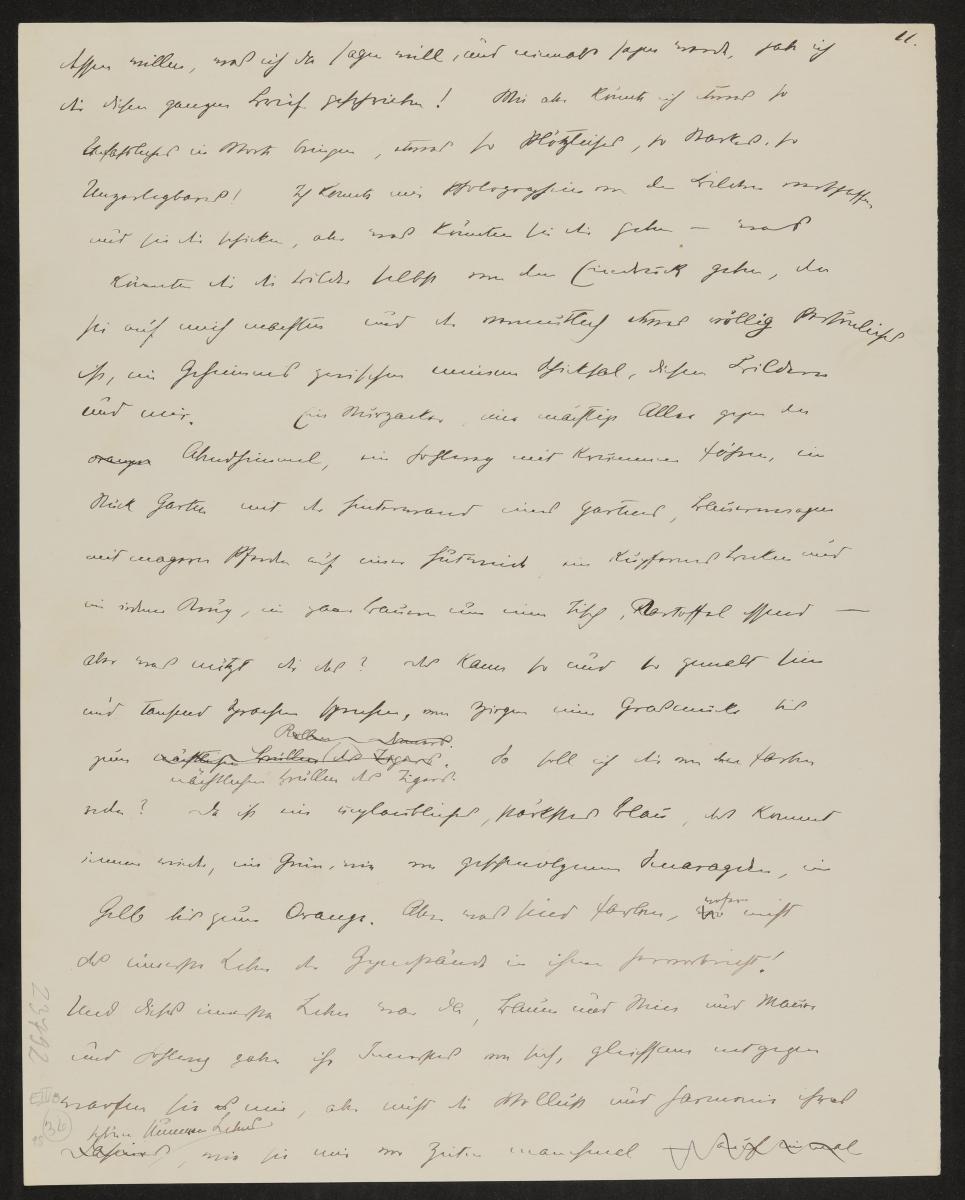 dessen willen, was ich da sagen will, und niemals sagen werde, hab ich 11.
dir diesen ganzen Brief geschrieben! Wie aber könnte ich etwas so
Unfassliches in Worte bringen, etwas so Plötzliches, so Starkes, so
Unzerlegbares! Ich könnte mir Photographien von den Bildern verschaffen
und sie dir schicken, aber was könnten sie dir geben — was
könnten dir die Bilder selbst von dem Eindruck geben, den
sie auf mich machten und der vermutlich etwas völlig Persönliches
ist, ein Geheimnis zwischen meinem Schicksal, diesen Bildern
und mir. Ein Sturzacker, eine mächtige Allee gegen den
orangen Abendhimmel, ein Hohlweg mit krummen Föhren, ein
Stück Garten mit der Hinterwand eines, Bauernwagen
mit magern Pferden auf einer Hutweide ein kupfernes Becken und
ein irdener Krug, ein paar Bauern um einen Tisch, Kartoffel essend —
aber was nützt dir das? das kann so und so gemalt sein
und tausend Sprachen sprechen, vom Zirpen einer Grasmücke bis
zum nächtlichen Brüllen des Tigers. So soll ich dir von den Farben
nächtlichen Brüllen des Tigers.
reden? Da ist ein unglaubliches, stärkstes Blau, das kommt
immer wieder, ein Grün, wie von geschmolzenen Smaragden, ein
Gelb bis zum Orange. Aber was sind Farben, wofern nicht
das innerste Leben der Gegenstände in ihnen hervorbricht!
Und dieses innerste Leben war da, Baum und Stein und Mauer
und Hohlweg gaben ihr Innerstes von sich, gleichsam entgegen
warfen sie es mir, aber nicht die Wollust und Harmonie ihres
schönen stummen Lebens
Daseins, wie sie mir vor Zeiten manchmal auf einmal
23792
E III
36